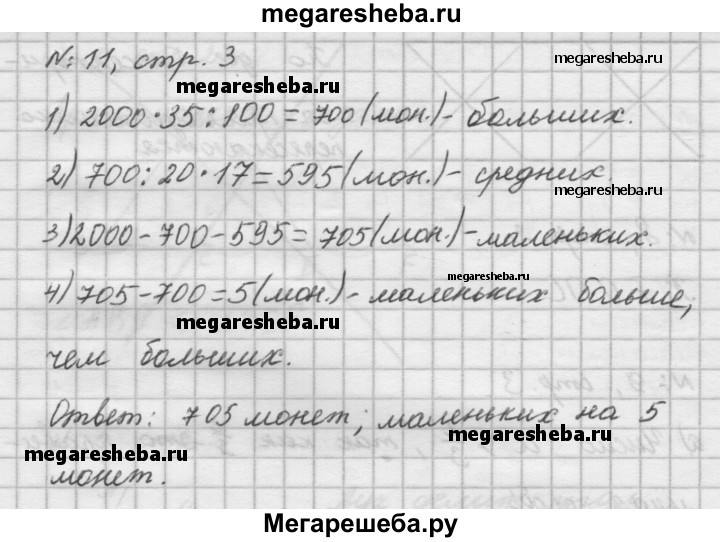 megaresheba.ru
№ 11, стр. 3
megaresheba.ru
megaresheba.ru
1) 2000·35:100=700(мон.)- больших.
2) 700:20·17=595(мон.)- средних.
megaresheba.ru
3) 2000-700-595=705(мон.)-маленьких.
megaresheba.ru
4) 705-700=5(мон.)- маленьких больше,
megaresheba.ru
чем больших.
Ответ: 705 монет; маленьких на 5
megaresheba.ru
megaresheba.ru
монет.
Мегарешеба.ру